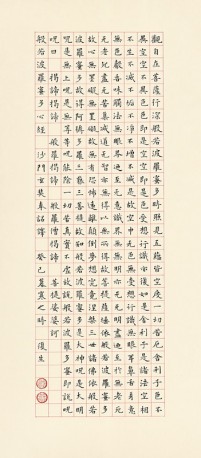 觀自在菩薩行深般若波羅蜜多時照見五蘊皆空度一切苦厄舍利子色不
異空空不異色色即是空空即是色受想行識亦復如是舍利子是諸法空相
不生不滅不垢不淨不增不減是故空中無色無受想行識無眼耳鼻舌身意
無色聲香味觸法無眼界乃至無意識界無無明亦無無明盡乃至無老死亦
無老死盡無苦集滅道無智亦無得以無所得故菩提薩埵依般若波羅蜜多
故心無罣礙無罣礙故無有恐怖遠離顛倒夢想究竟涅槃三世諸佛依般若
波羅蜜多故得阿耨多羅三藐三菩提故知般若波羅蜜多是大神呪是大明
呪是無上呪是無等等呪能除一切苦真實不虛故說般若波羅蜜多呪即說
呪曰 揭諦揭諦 般羅揭諦 般羅僧揭諦 菩提薩婆訶
般若波羅蜜多心經 沙門玄奘奉詔譯 癸巳 之時